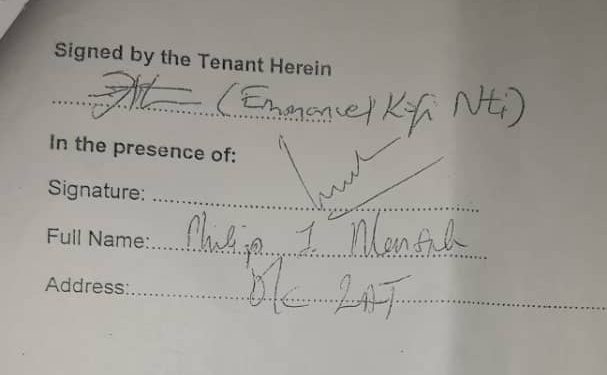 Signed by the Tenant Herein
(Emmanuel Kofi Nti)
In the presence of:
Signature:
Full Name: Philip I. Mensah
Address: